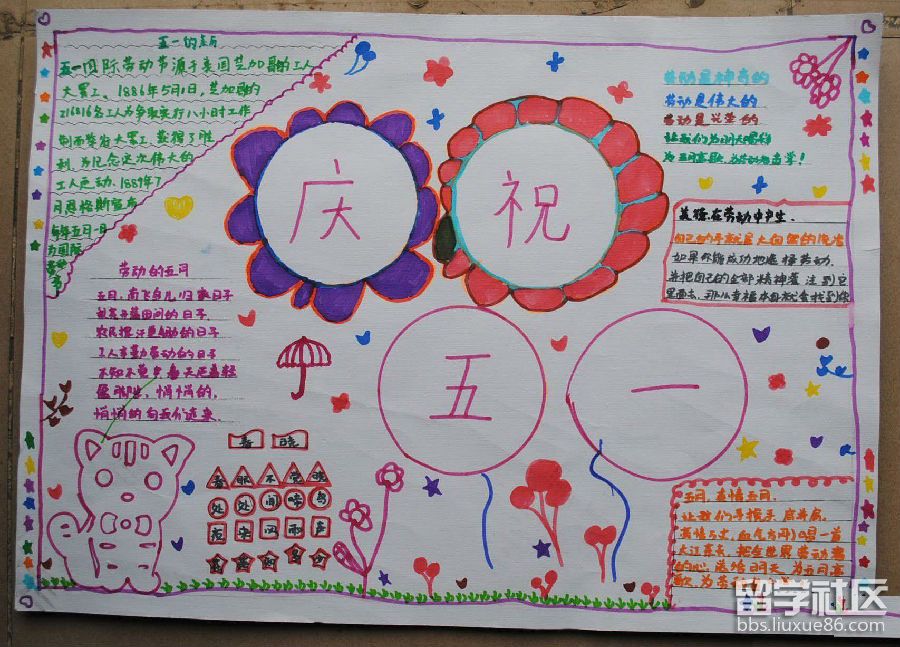 五一的来历
五一国际劳动节源于美国芝加哥的工人
大罢工。1886年5月1日,芝加哥的
216816名工人为争取实行八小时工作
制而举行大罢工,获得了胜
利。为纪念这次伟大的
工人运动,1889年7
月恩格斯宣布
每年五月一日
为国际
劳动
节
庆
祝
五
一
劳动是神奇的
劳动是伟大的
劳动是光荣的
让我们为明天喝彩
美德在劳动中产生.
自己的手就是大自然的
如果你能成功地选择劳动,
并把自己的全部精神灌注到它
里面去,那么幸福本身就会找到你
劳动的五月
五月,南飞鸟儿归家日子
的日子
农民挥汗
工人辛勤劳动的日子
不知不觉中
悄悄的,
悄悄的向我们走来.
春
晓
春眠不觉晓
处处闻啼鸟
夜来风雨声
花落知多少
五月,真情五月.
让我们手握手,肩并肩,
大江东长,把全世界劳动者
的心,送给明天,为五月高
歌,为劳动
留学社区
bbs.liuxue86.com